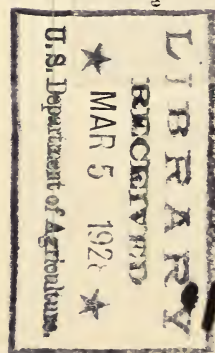 LIBRARY
RECEIVED
★ MAR 5 1928 ★
U.S. Department of Agriculture.